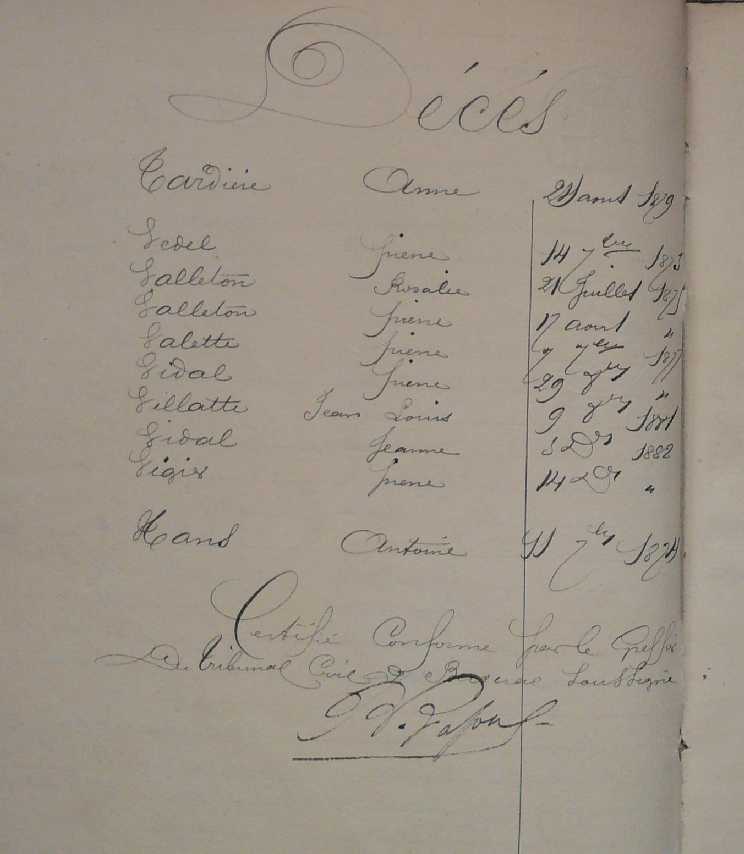 Décés
Tardiere Anne 24 aout 1879
Vedel pierre 14 7bre 1873
Valleton Rosalie 21 Juillet 1875
Valleton pierre 17 aout "
Valette pierre 9 7bre 1877
Vidal pierre 29 "
Villatte Jean Louis 9 1881
Vidal Jeanne 1882
Vigier pierre 14 "
Hans Antoine 11 7bre 1874
Certifié Conforme par le Greffier
Du tribunal Civil de Bergerac Soussigné